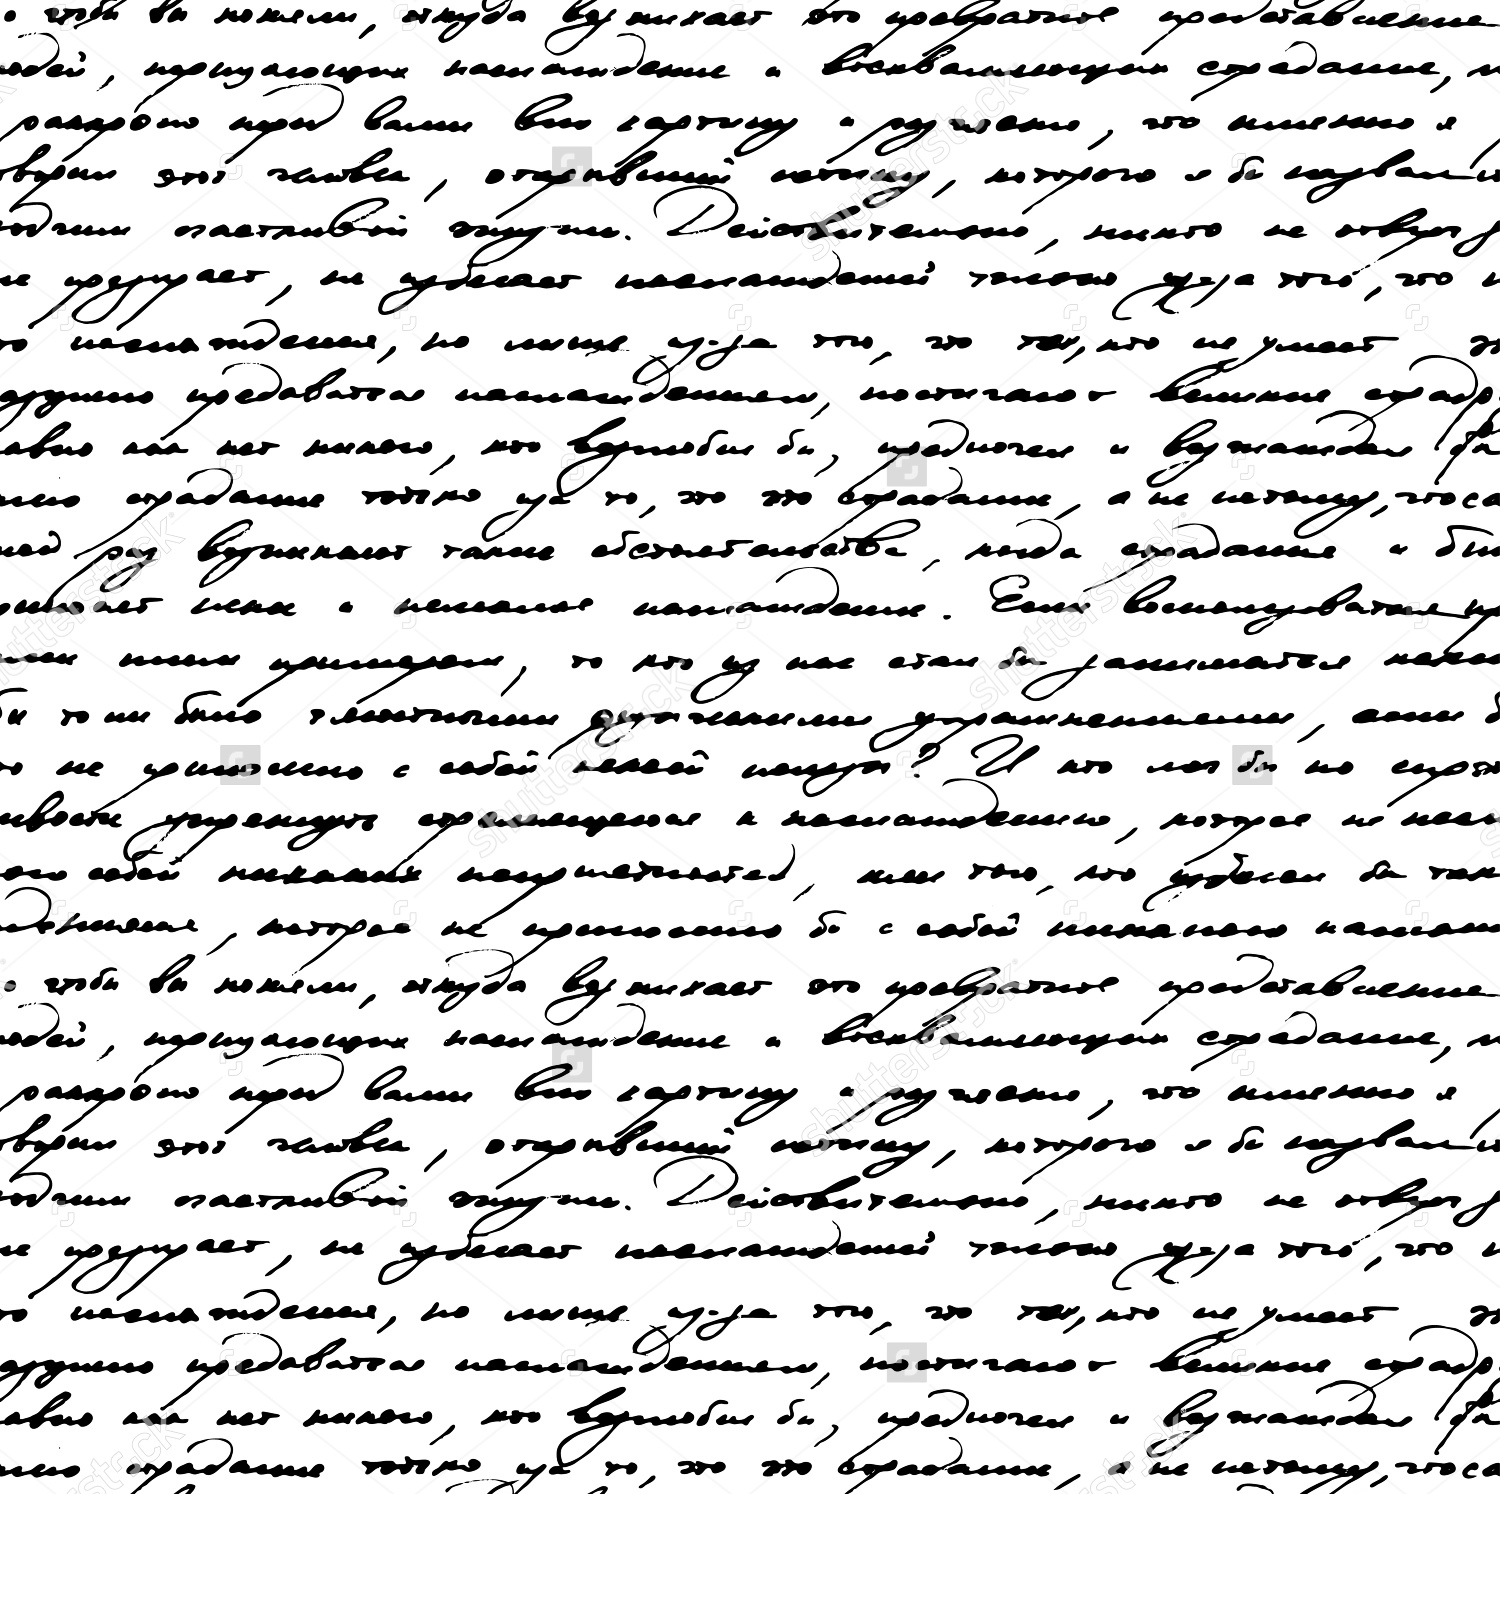 о чтобы вы поняли, откуда возникает это превратное представление
людей, порицающих наслаждение и восхваляющих страдания,
раскрою перед вами всю картину и разъясню, что именно
этот человек, открывший истину, которого я бы назвал
зодчим счастливой жизни. Действительно, никто не отверга
не презирает, не избегает наслаждений только из-за того, что
то наслаждения, но лишь из-за того, что тех, кто не умеет
разумно предаваться наслаждениям, постигают великие страда
авно как нет никого, кто возлюбил бы, предпочел и возжаждал бы
страдание только за то, что это страдание, а не потому, что
ной раз возникают такие обстоятельства, когда страдания и бо
приносят некое и немалое наслаждение. Если воспользоваться пр
шим примером, то кто из нас стал бы заниматься каким
бы то ни было тягостными физическими упражнениями, если б
то не приносило с собой некоей пользы? И кто мог бы по спра
ивости упрекнуть стремящегося к наслаждению, которое не несл
ого собой никаких неприятностей, или того, кто избегал бы так
которое не приносило бы с собой никакого наслаж
о чтобы вы поняли, откуда возникает это превратное представление
людей, порицающих наслаждение и восхваляющих страдание,
раскрою перед вами всю картину и разъясню, что именно
этот человек, открывший истину, которого я бы назвал
зодчим счастливой жизни. Действительно, никто не отверга
не презирает, не избегает наслаждений только из-за того, что
то наслаждения, но лишь из-за того, что тех, кто не умеет
разумно предаваться наслаждениям, постигают великие страда
авно как нет никого, кто возлюбил бы, предпочел и возжаждал бы
страдание только за то, что это страдание, а не потому, что